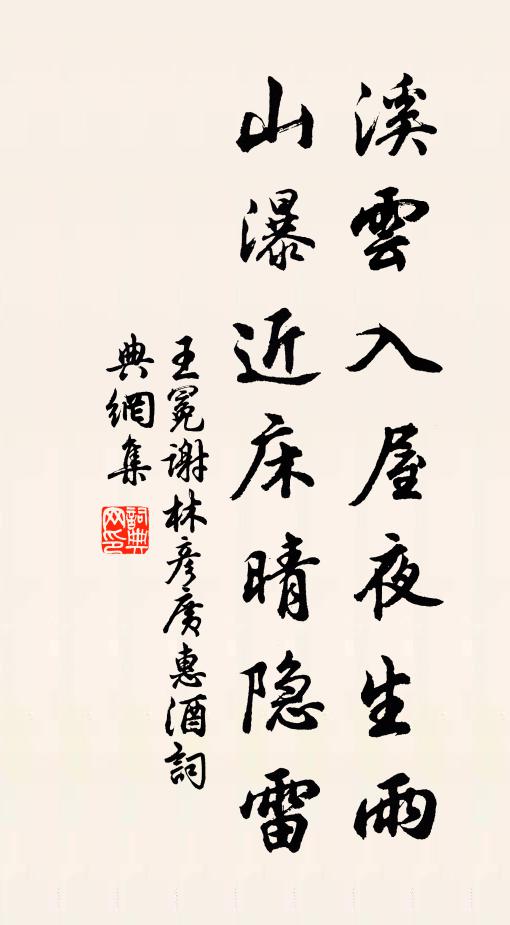 溪雲入屋夜生雨
山瀑近床晴隐雷
王冕謝林彦廣惠酒詞
典網集
詞典
网印